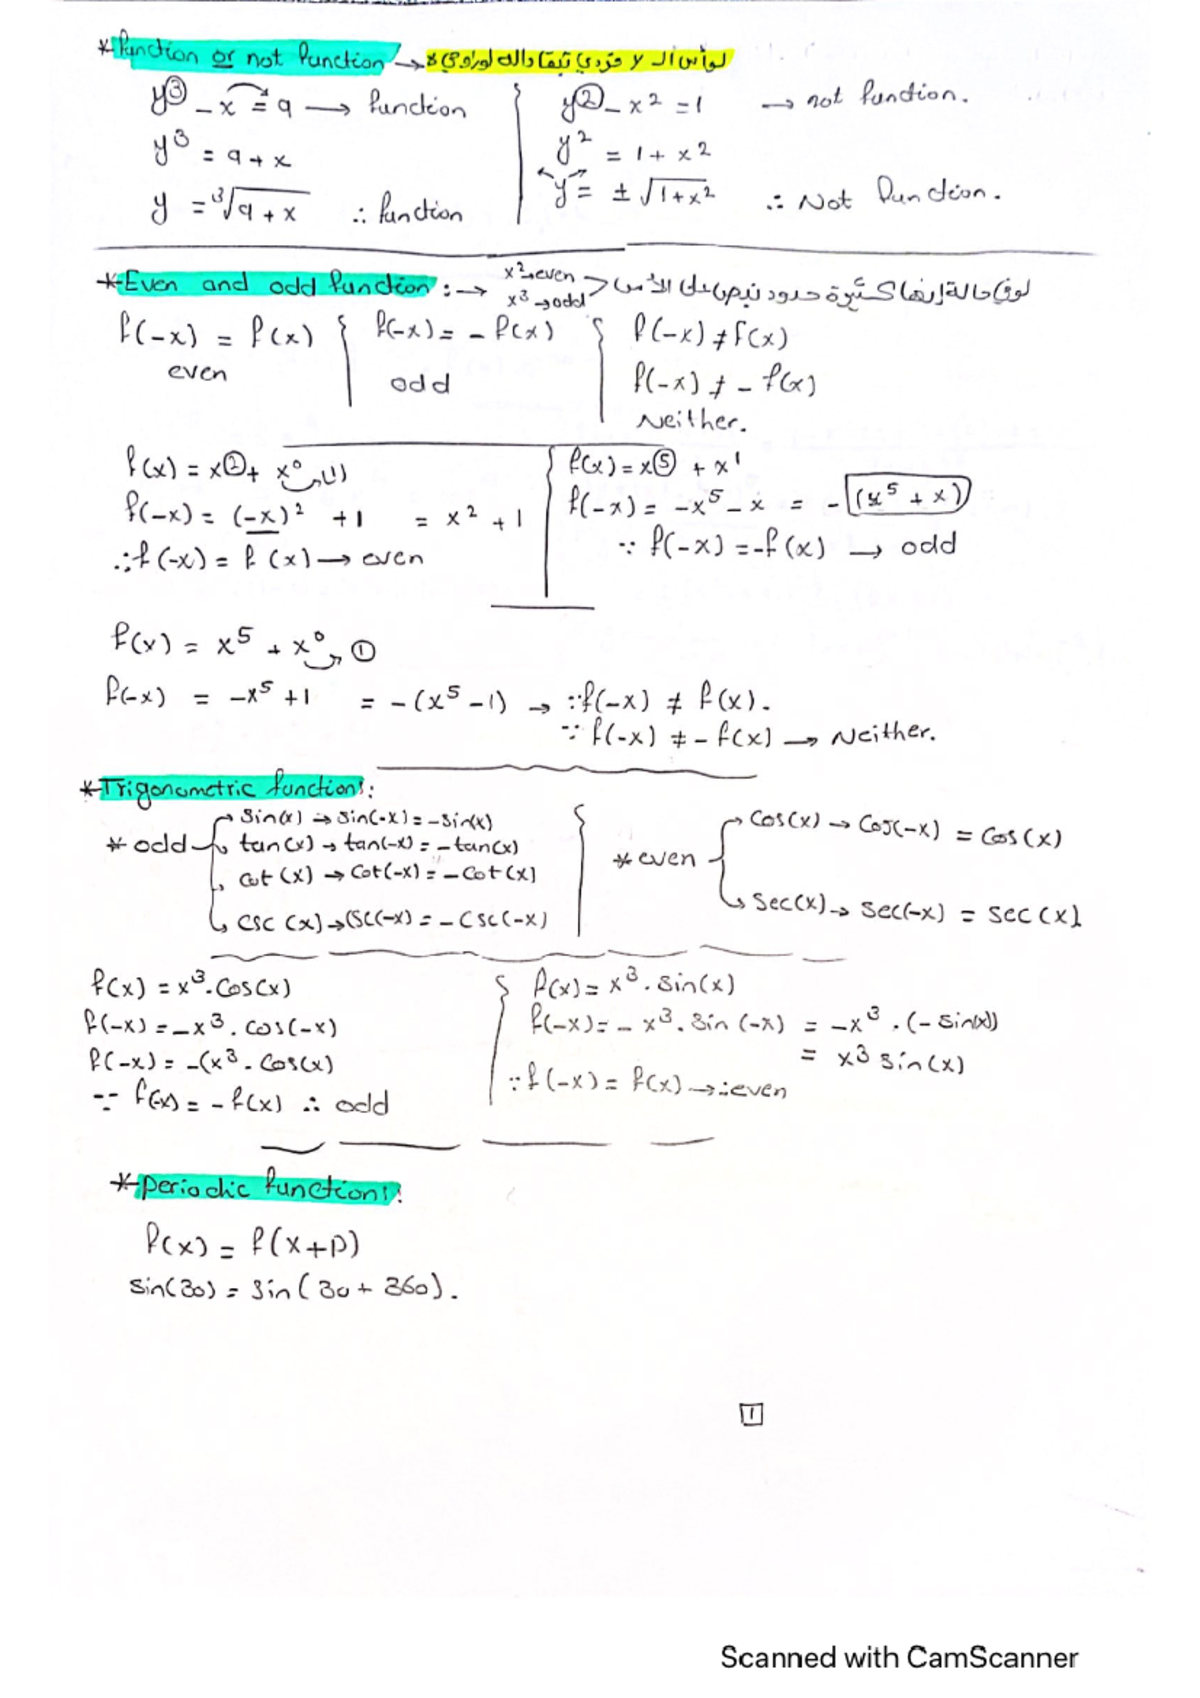 * Function or not function → لو أس الـ y فردي تبقا داله لو زوجي لا
y③ - x = 9 → function
y³ = 9 + x
y = ³√9 + x ∴ function
y② - x² = 1 → not function.
y² = 1 + x²
y = ± √1 + x² ∴ Not function.
* Even and odd function: → x² → even x³ → odd لو في حالة إنها كثيرة حدود نبص على الأس
f(-x) = f(x)
even
f(-x) = - f(x)
odd
f(-x) ≠ f(x)
f(-x) ≠ - f(x)
Neither.
f(x) = x② + x⁰ (1)
f(-x) = (-x)² + 1 = x² + 1
∴ f(-x) = f(x) → even
f(x) = x⑤ + x¹
f(-x) = -x⁵ - x = - (x⁵ + x)
∵ f(-x) = -f(x) → odd
f(x) = x⁵ + x⁰ ①
f(-x) = -x⁵ + 1 = - (x⁵ - 1) → ∵ f(-x) ≠ f(x).
∵ f(-x) ≠ - f(x) → Neither.
* Trigonometric functions:
* odd
sin(x) → sin(-x) = -sin(x)
tan(x) → tan(-x) = -tan(x)
cot(x) → cot(-x) = -cot(x)
csc(x) → csc(-x) = -csc(-x)
* even
cos(x) → cos(-x) = cos(x)
sec(x) → sec(-x) = sec(x)
f(x) = x³.cos(x)
f(-x) = -x³.cos(-x)
f(-x) = -(x³.cos(x)
∵ f(-x) = -f(x) ∴ odd
f(x) = x³.sin(x)
f(-x) = - x³.sin(-x) = -x³.(-sin(x))
= x³ sin(x)
∵ f(-x) = f(x) → ∴ even
* periodic functions:
f(x) = f(x+p)
sin(30) = sin(30 + 360).
1
Scanned with CamScanner